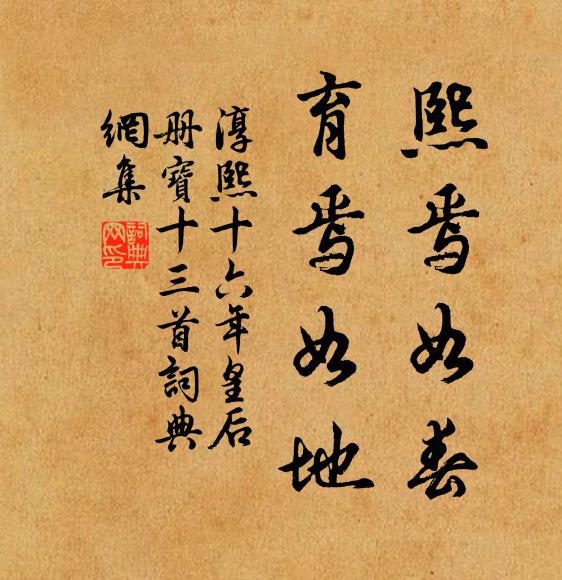 熙焉如春
育焉如地
淳熙十六年皇后
册寶十三首詞典
網集
詞典
网印